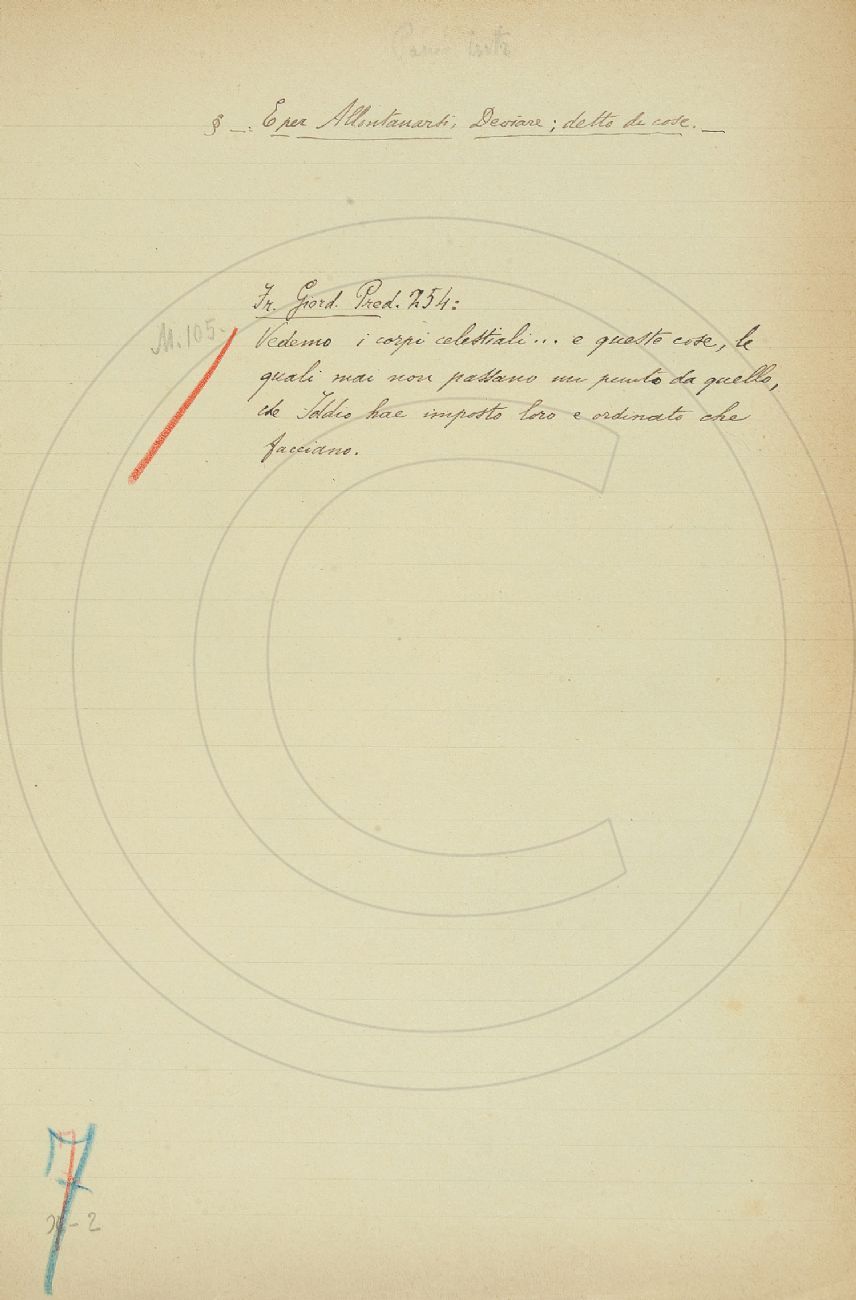 § — : E per Allontanarsi, Deviare; detto di cose. —
Fr. Giord. Pred. 254:
M. 105.
Vedemo i corpi celestiali... e queste cose, le
quali mai non passano un punto da quello,
che Iddio hae imposto loro e ordinato che
facciano.
7